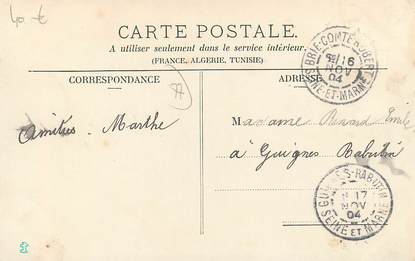 40 €
CARTE POSTALE.
A utiliser seulement dans le service intérieur.
(FRANCE, ALGERIE, TUNISIE)
CORRESPONDANCE
ADRESSE
BRIE-COMTE-ROBERT
16
NOV
04
SEINE-ET-MARNE
77
Amitiés. Marthe
Madame Renard Emile
à Guignes Rabutin
GUIGNES-RABUTIN
17
NOV
04
SEINE ET MARNE